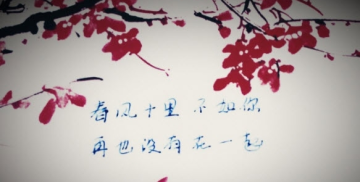 春风十里 不如你
再也没有在一起